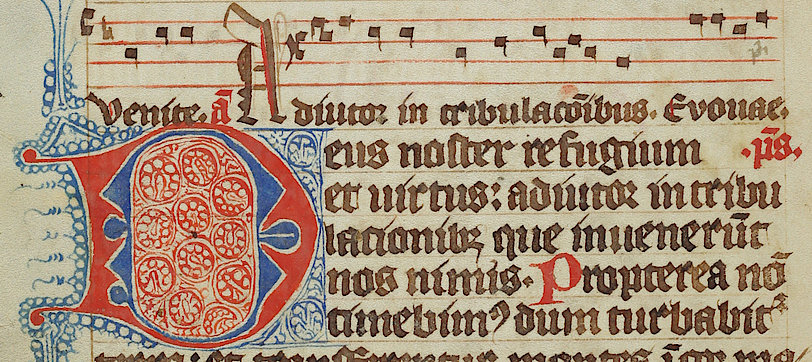 Venite. a̅ Adiutor in tribulac̅o̅ibus. Evouae.
Deus noster refugium .p̅s.
et uirtus: adiutor in tribu
lationibꝫ que inuenerū̅t
nos nimis. Propterea nō
timebimꝰ dum turbabit᷑